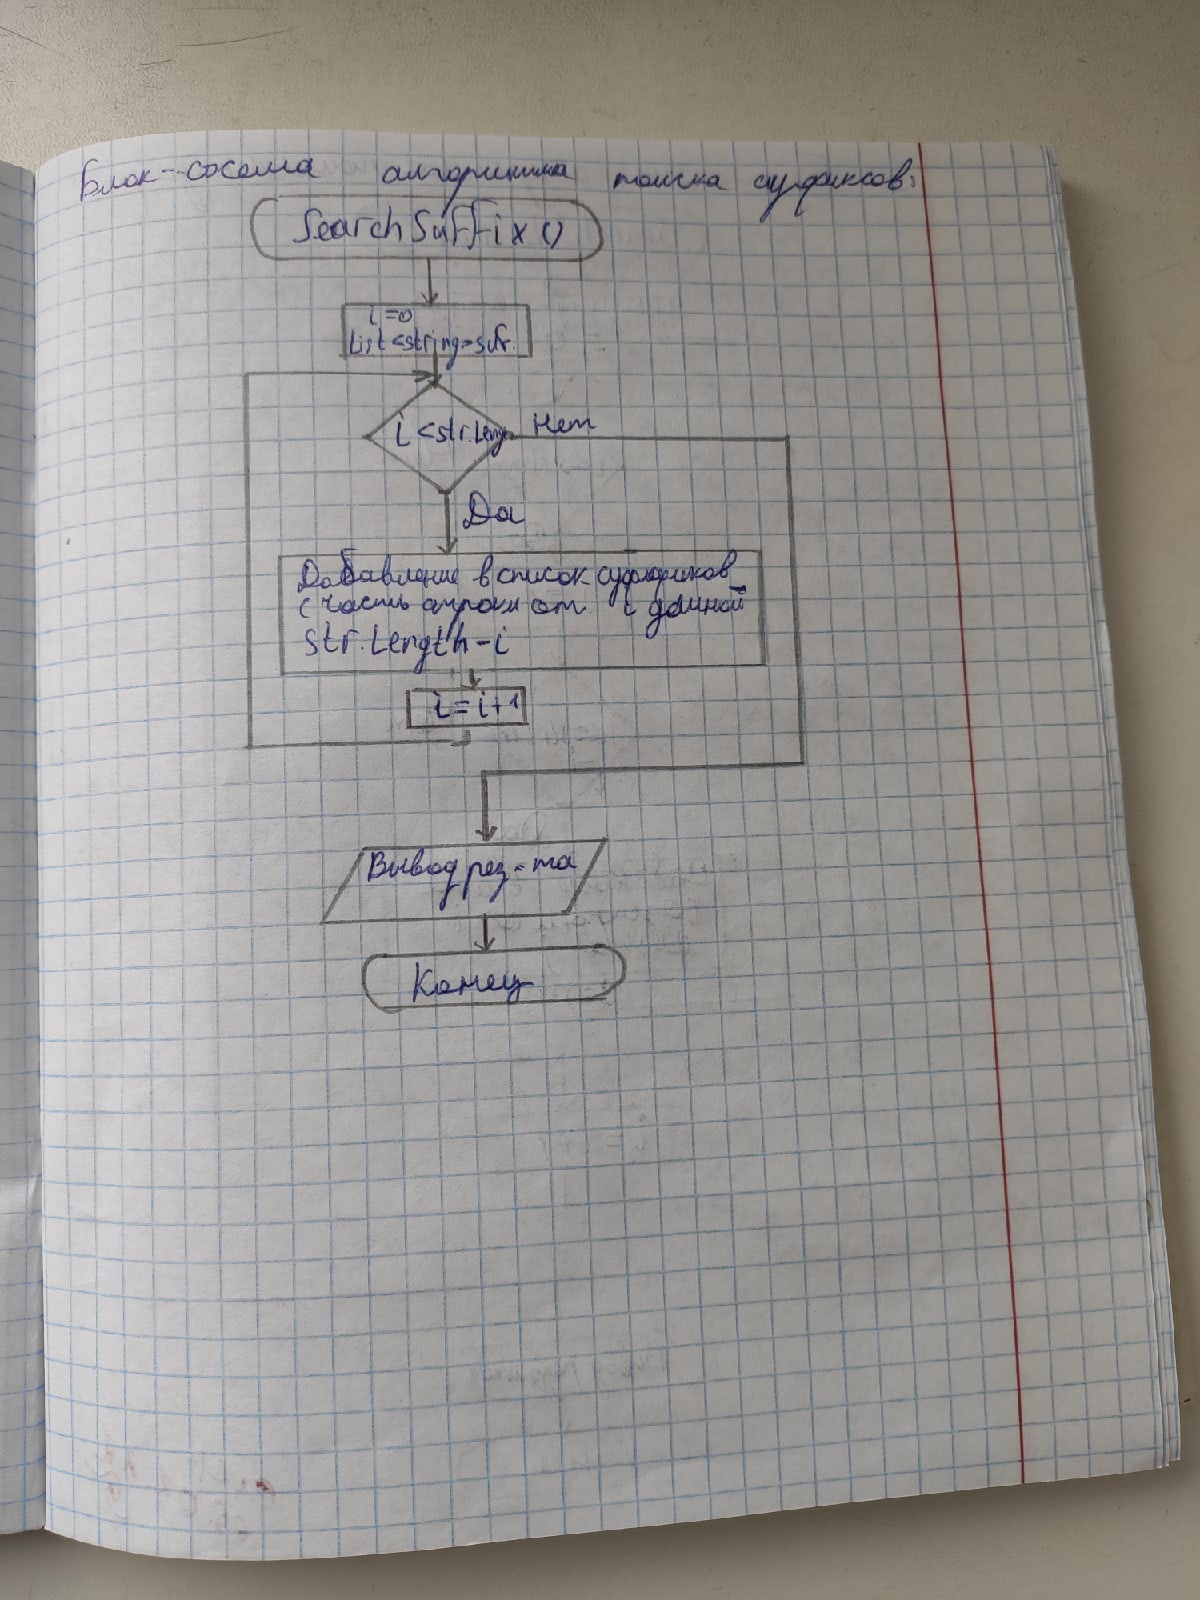 Блок-схема алгоритма поиска суффиксов:
SearchSuffix()
i=0
List<string>suf.
i<str.Leng
Нет
Да
Добавление в список суффиксов
часть строки от i длиной
str.Length-i
i=i+1
Вывод рез-та
Конец